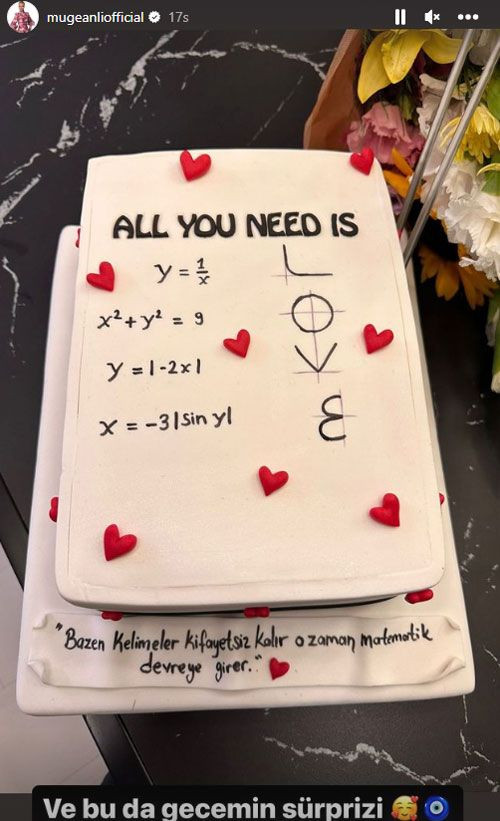 mugeanliofficial 17s
ALL YOU NEED IS
y = 1/x
x² + y² = 9
y = |-2x|
x = -3|sin y|
L
O
V
E
"Bazen Kelimeler kifayetsiz kalır o zaman matematik
devreye girer."
Ve bu da gecemin sürprizi 🥰 🧿